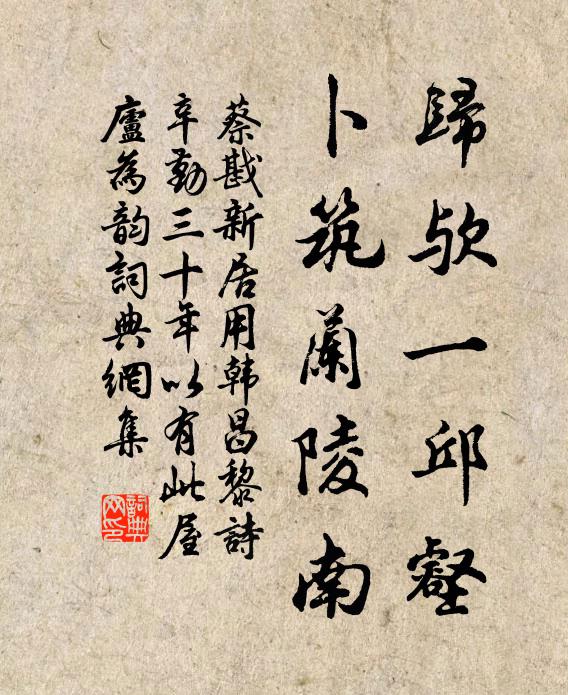 歸欤一邱壑
卜筑蘭陵南
蔡戡新居用韩昌黎詩
辛勤三十年以有此屋
廬為韵詞典網集
詞典网印